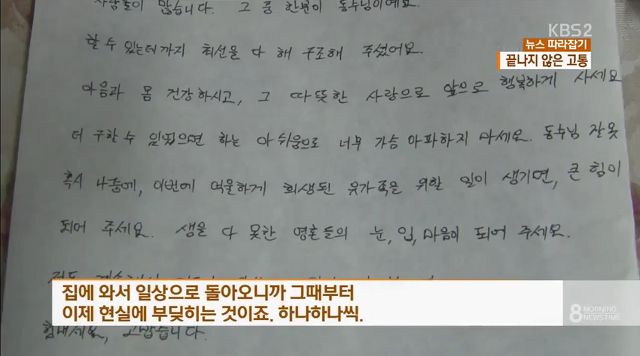 많습니다. 그 중 한분이 동수님이예요.
KBS2
뉴스 따라잡기
끝나지 않은 고통
할 수 있는데까지 최선을 다 해 구조해 주셨어요.
마음과 몸 건강하시고, 그 따뜻한 사랑으로 앞으로 행복하게 사세요
더 구할 수 있었으면 하는 아쉬움으로 너무 가슴 아파하지 마세요. 동수님 잘못
혹시 나중에, 이번에 억울하게 희생된 유가족을 위할 일이 생기면, 큰 힘이
되어 주세요. 생을 다 못한 영혼들의 눈, 입, 마음이 되어 주세요.
집에 와서 일상으로 돌아오니까 그때부터
이제 현실에 부딪히는 것이죠. 하나하나씩.
8 MORNING NEWSTIME
힘내세요, 고맙습니다.